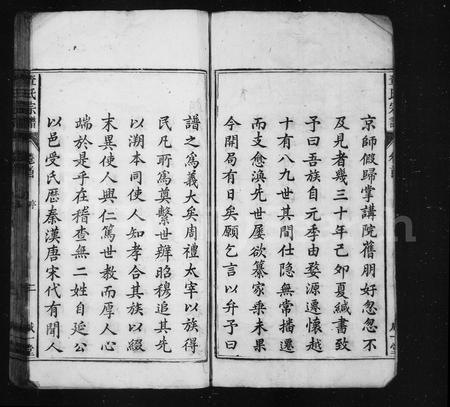 京師假歸掌講院舊朋好忽忽不
及見者幾三十年己夘夏緘書致
予曰吾族自元季由婺源遷懷越
十有八九世其間仕隐無常播遷
而支愈渙先世屢欲纂家乗未果
今開局有日矣願乞言以弁予曰
譜之為義大矣周禮太宰以族得
民凡所爲奠繫世辨昭穆追其先
以溯本同使人知孝合其族以綴
末異使人興仁篤世教而厚人心
端於是乎在稽查無二姓自延公
以邑受氏歷秦漢唐宋代有聞人
查氏宗譜
卷首
序
二